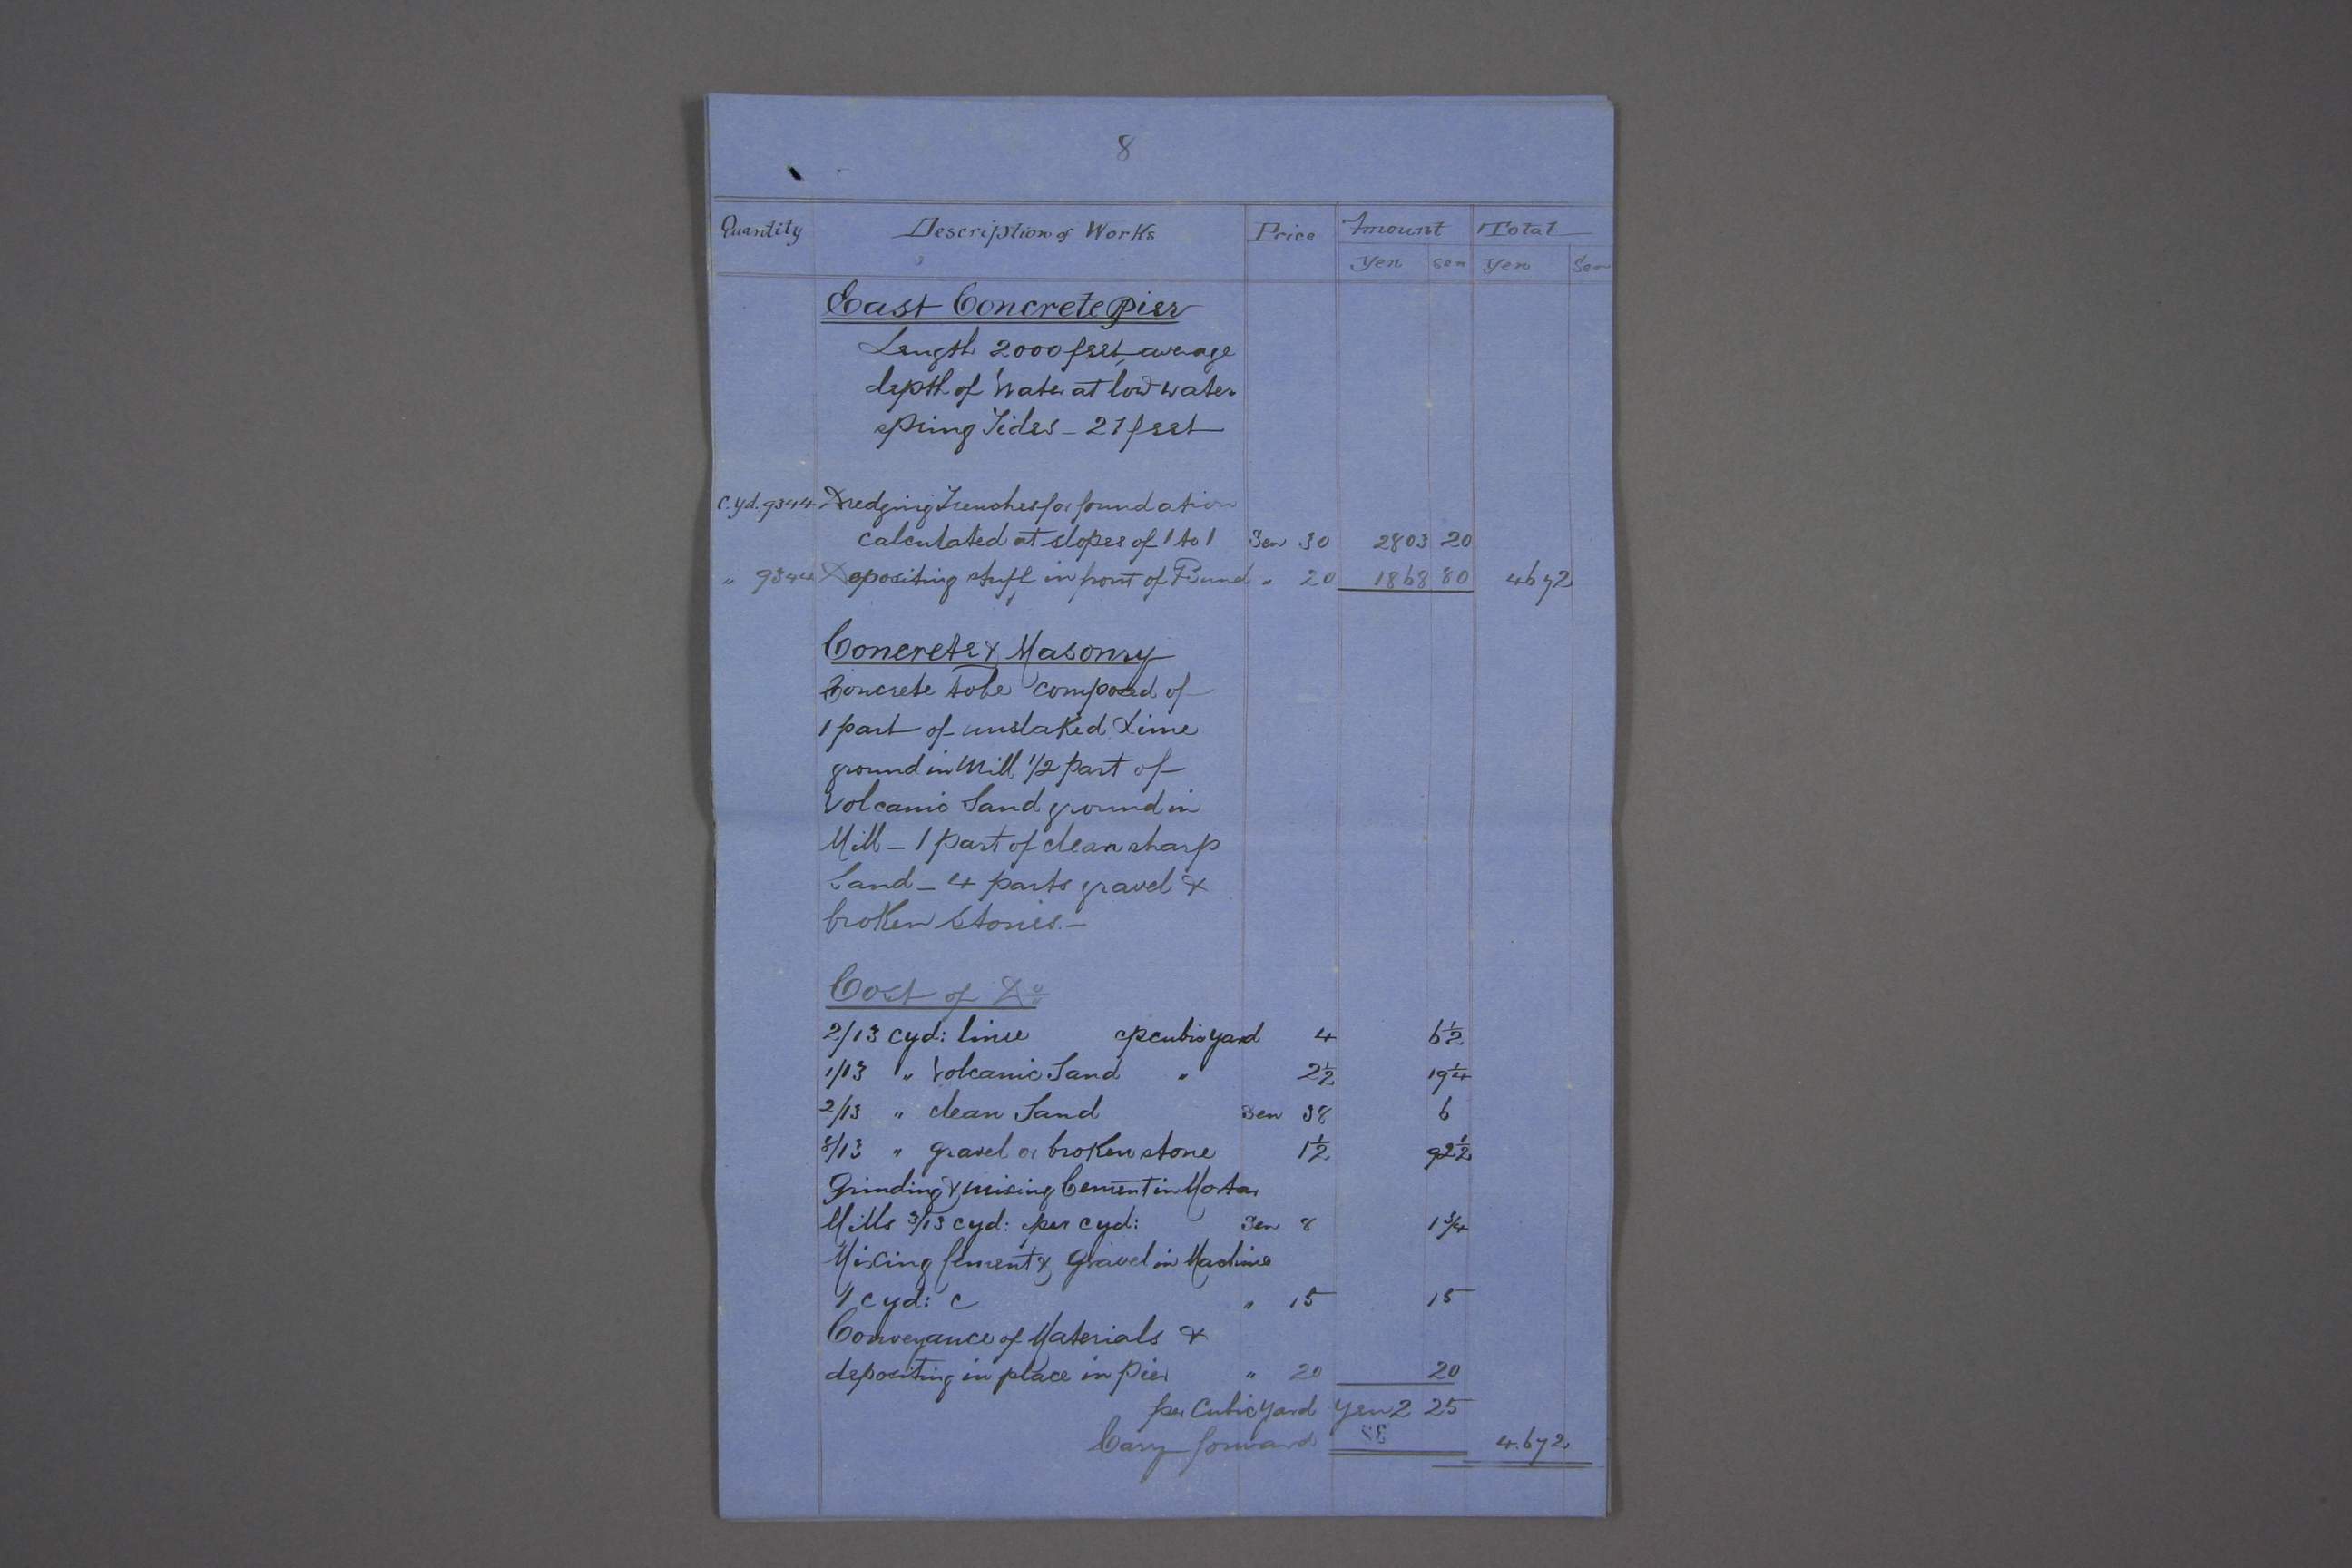 8
Quantity Description of Works Price Amount Total
Yen Sen Yen Sen
East Concrete Pier
Length 2000 feet, average
depth of Water at low water
spring Tides - 21 feet
C.yd. 9344 Dredging Trenches for foundation
calculated at slopes of 1 to 1 Sen 30 2803 20
" 9344 Depositing stuff in front of Bund " 20 1868 80 4672
Concrete & Masonry
Concrete to be composed of
1 part of unslaked Lime
ground in Mill 1/2 part of
Volcanic Sand ground in
Mill - 1 part of clean sharp
Sand - 4 parts gravel &
broken stones.-
Cost of Do
2/13 cyd: lime p cubic yard 4 6½
1/13 " Volcanic Sand " 2½ 19¼
2/13 " clean Sand Sen 38 6
8/13 " gravel or broken stone 1½ 92½
Grinding & mixing Cement in Mortar
Mills 3/13 cyd: per cyd: Sen 8 1¾
Mixing Cement & gravel in Machine
1 cyd: c " 15 15
Conveyance of Materials &
depositing in place in Pier " 20 20
per Cubic Yard Yen 2 25
Carry forward 4.672